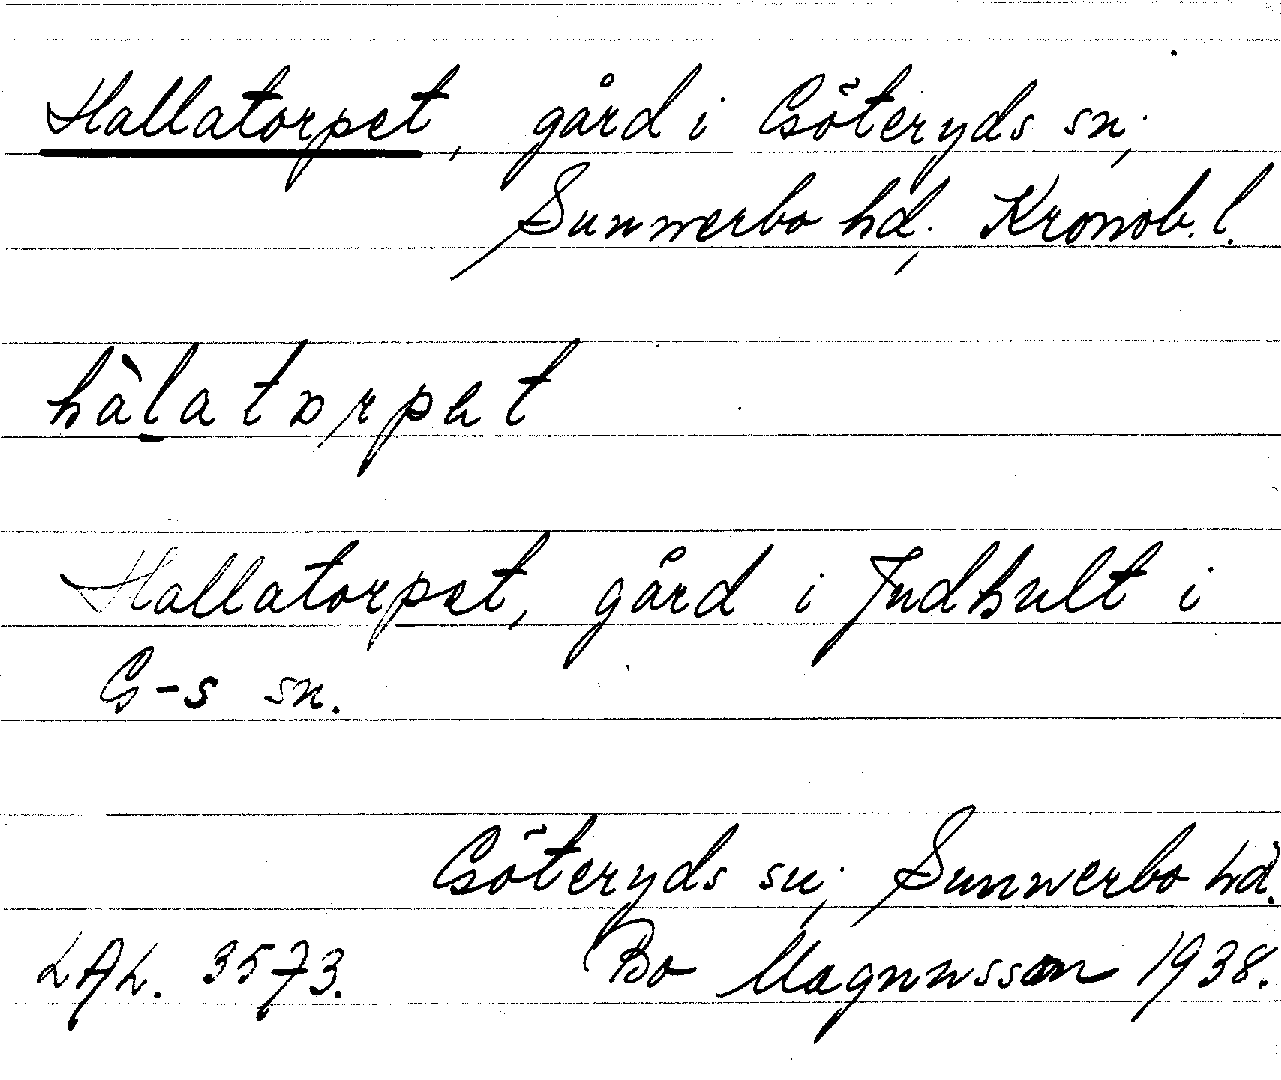 Hallatorpet, gård i Göteryds sn;
Sunnerbo hd; Kronob. l.
hàlatorpet
Hallatorpet, gård i Judhult i
G-s sn.
Göteryds sn; Sunnerbo hd.
LAL. 3573. Bo Magnusson 1938.